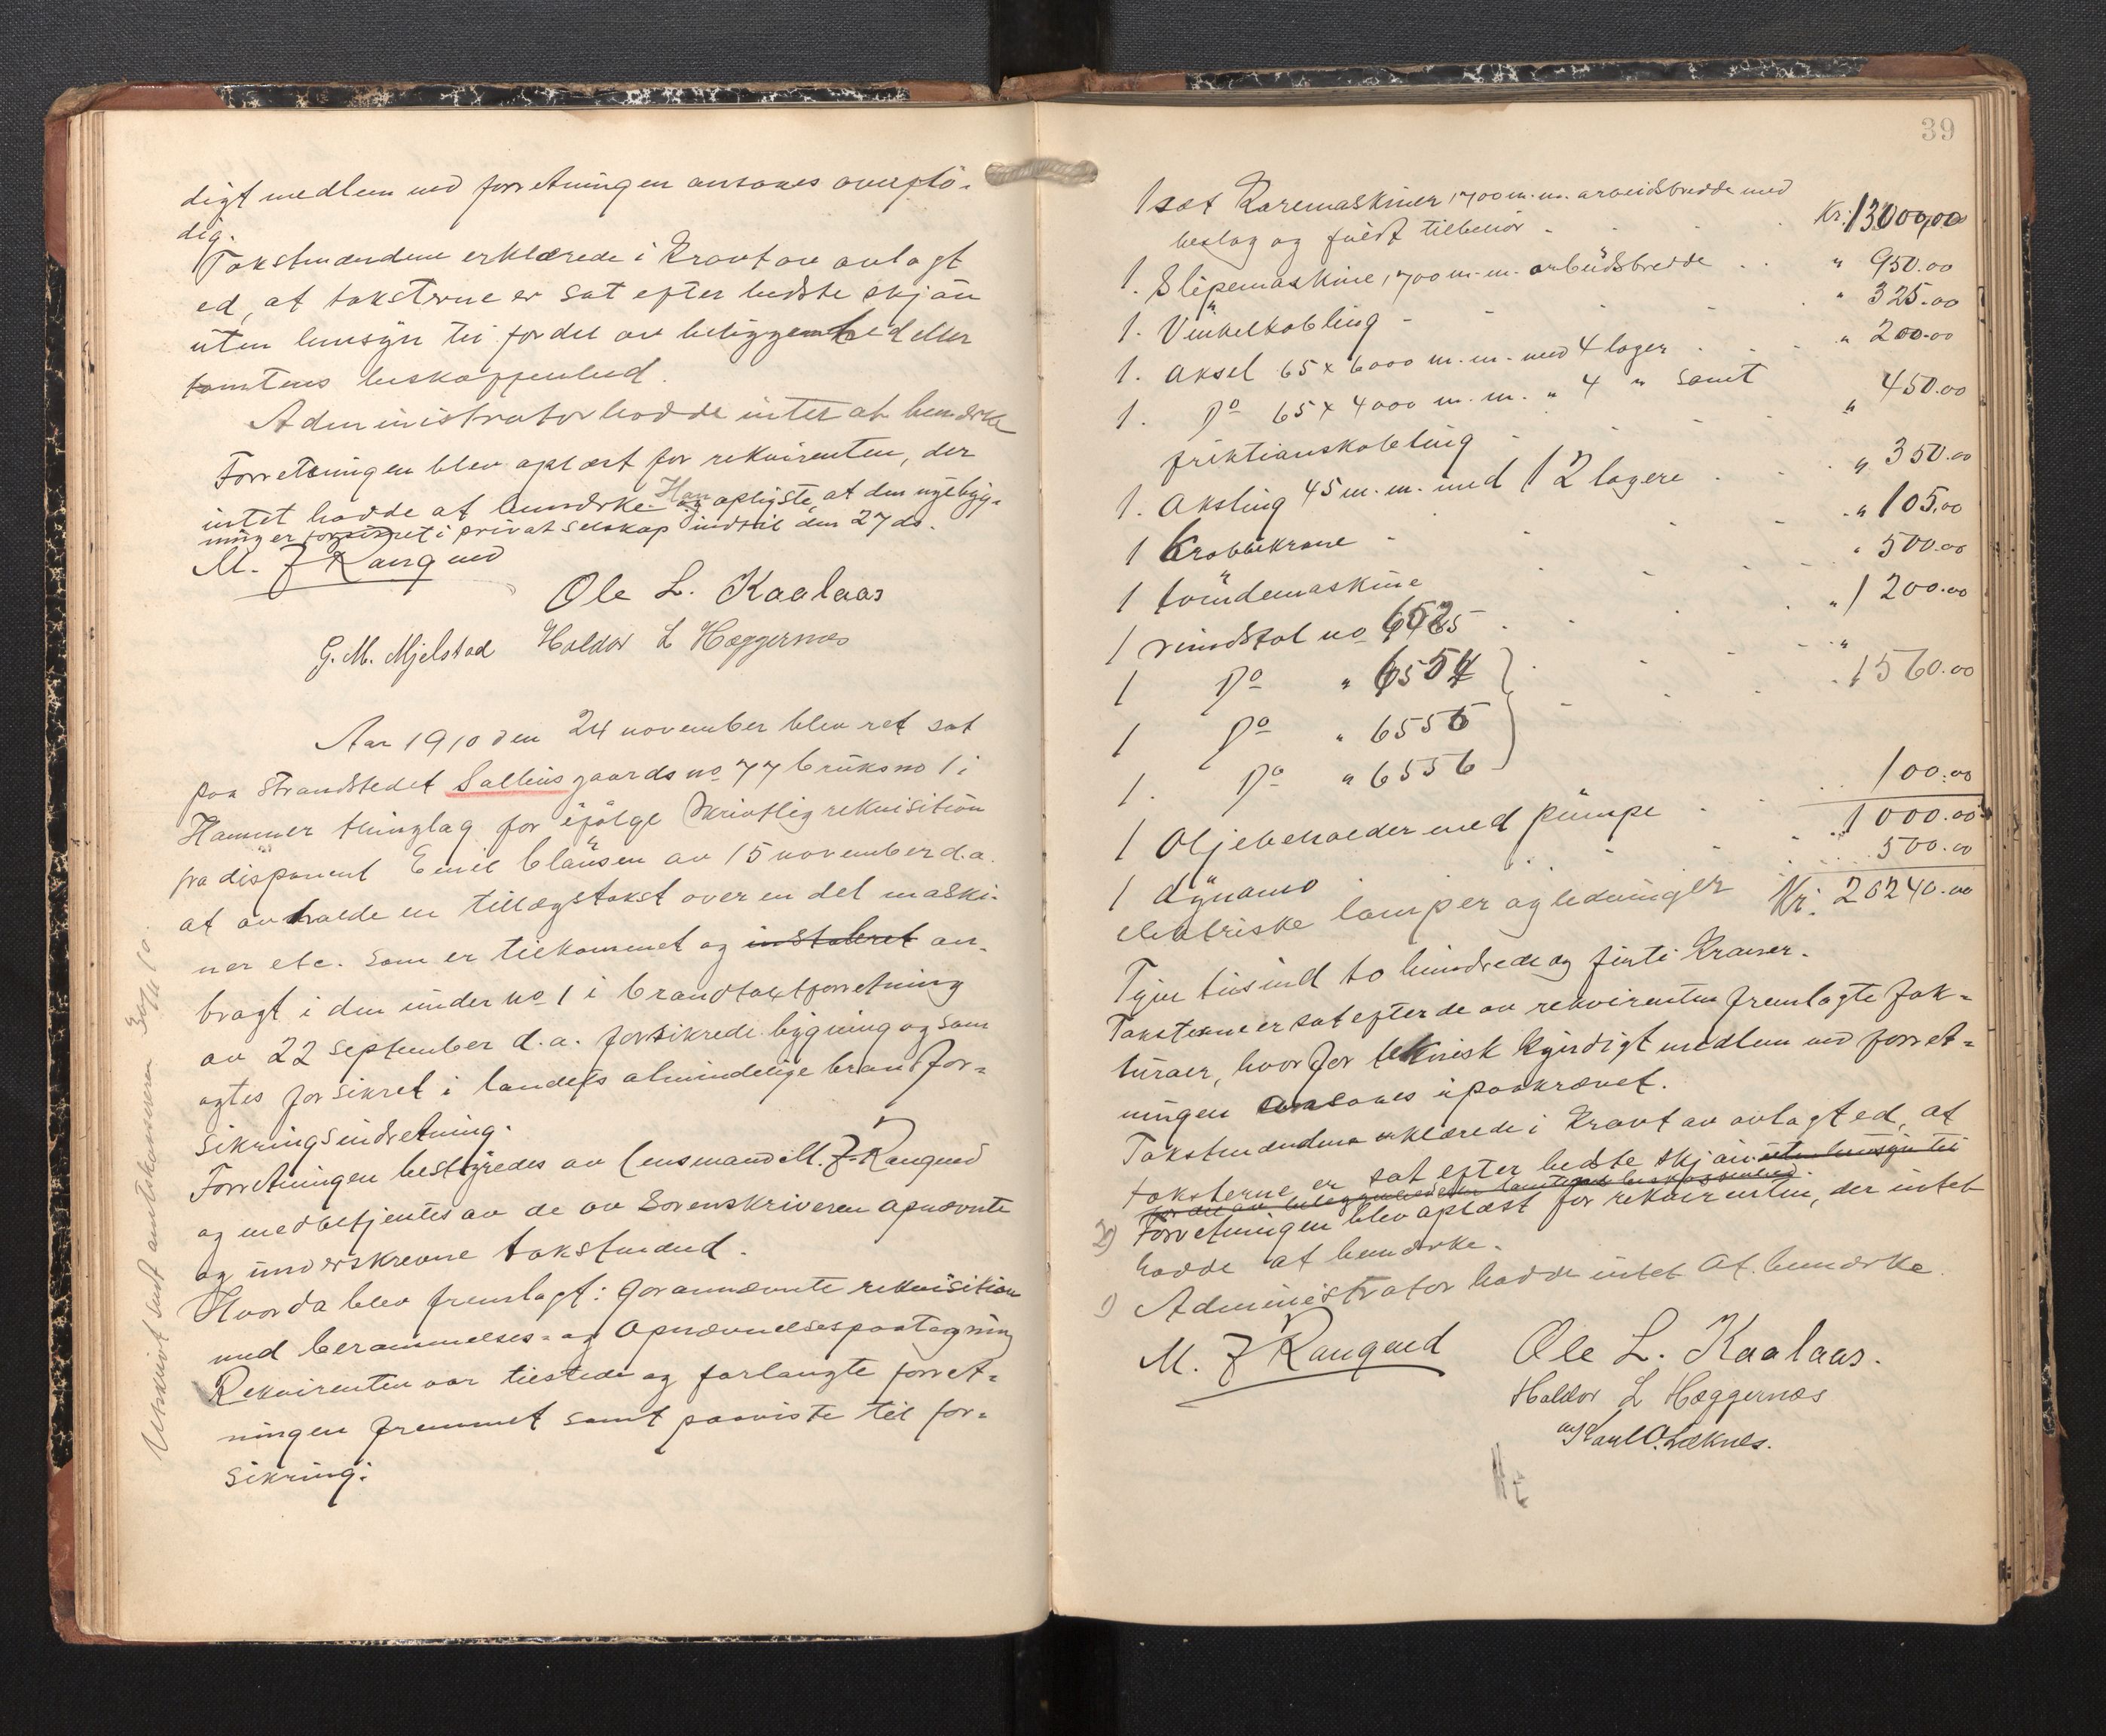 digt medlem ved forretningen ansaaes overflö-
dig.
Takstmændene erklærede i Kraft av avlagt
ed, at taksterne er sat efter bedste skjön
uten hensyn til fordel av beliggenhed eller
tomtens beskaffenhed.
Administrator hadde intet at bemærke
Forretningen blev oplæst for rekvirenten, der
intet hadde at bemærke. Han oplyste, at den nye byg-
ning er forsikret i privat selskap indtil den 27 ds.
M. J Rangned
Ole L. Kaalaas
G. M. Mjelstad Haldor L Hæggernæs
Aar 1910 den 24 november blev ret sat
paa Strandstedet Salhus gaards no 77 bruks no 1 i
Hammer thinglag for ifölge skriftlig rekvisition
fra disponent Emil Clausen av 15 november d.a.
at avholde en tillægstakst over en del maski-
ner etc. som er tilkommet og instaleret an-
bragt i den under no 1 i brandtaxtforretning
av 22 september d.a. forsikrede bygning og som
agtes forsikret i landets almindelige brandfor-
sikringsindretning.
Forretningen bestyredes av lensmand M. J. Rangned
og medbetjentes av de av Sorenskriveren opnævnte
og underskrevne takstmænd.
Hvorda blev fremlagt: Foranævnte rekvisition
med berammelses- og Opnævnelsespaategning
Rekvirenten var tilstede og forlangte forret-
ningen fremmet samt paaviste til for-
sikring:
Utskrivt sendt amtskonseren 30/11 10.
39
1 sæt Karemaskiner 1700 m.m. arbeidsbredde med
beslag og fuldt tilbehör - Kr. 13000,00
1. Slipemaskine, 1700 m.m. arbeidsbredde . . " 950.00
1. Vinkelkobling - " 325.00
1. Aksel 65 x 6000 m.m. med 4 lager . . " 200.00
1. Do 65 x 4000 m.m. " 4 " samt
friktionskobling - " 450.00
1. Aksling 45 m.m. med 12 lagere . " 350.00
1 Krabbekrane - " 105,00
1 tvindemaskine " 500.00
1 rundstol no 6525 . " 1200.00
1 Do " 6554 "
1 Do " 6555 1560.00
1. Do " 6556
1 Oljebeholder med pumpe . 100.00
1 dynamo 1000.00
elektriske lamper og ledninger 500.00
Kr. 20240.00
Tyve tusind to hundrede og firti Kroner.
Taksterne er sat efter de av rekvirenten fremlagte fak-
turaer, hvorfor teknisk kyndigt medlem ved forret-
ningen ansaaes upaakrævet.
Takstmændene erklærede i Kraft av avlagt ed, at
taksterne er sat efter bedste skjön uten hensyn til
fordel av beliggenhed eller tomtens beskaffenhed.
2) Forretningen blev oplæst for rekvirenten, der intet
hadde at bemærke.
1) Administrator hadde intet at bemærke.
M. J Rangned Ole L. Kaalaas.
Haldor L Hæggernæs
Karl O. Læknes.